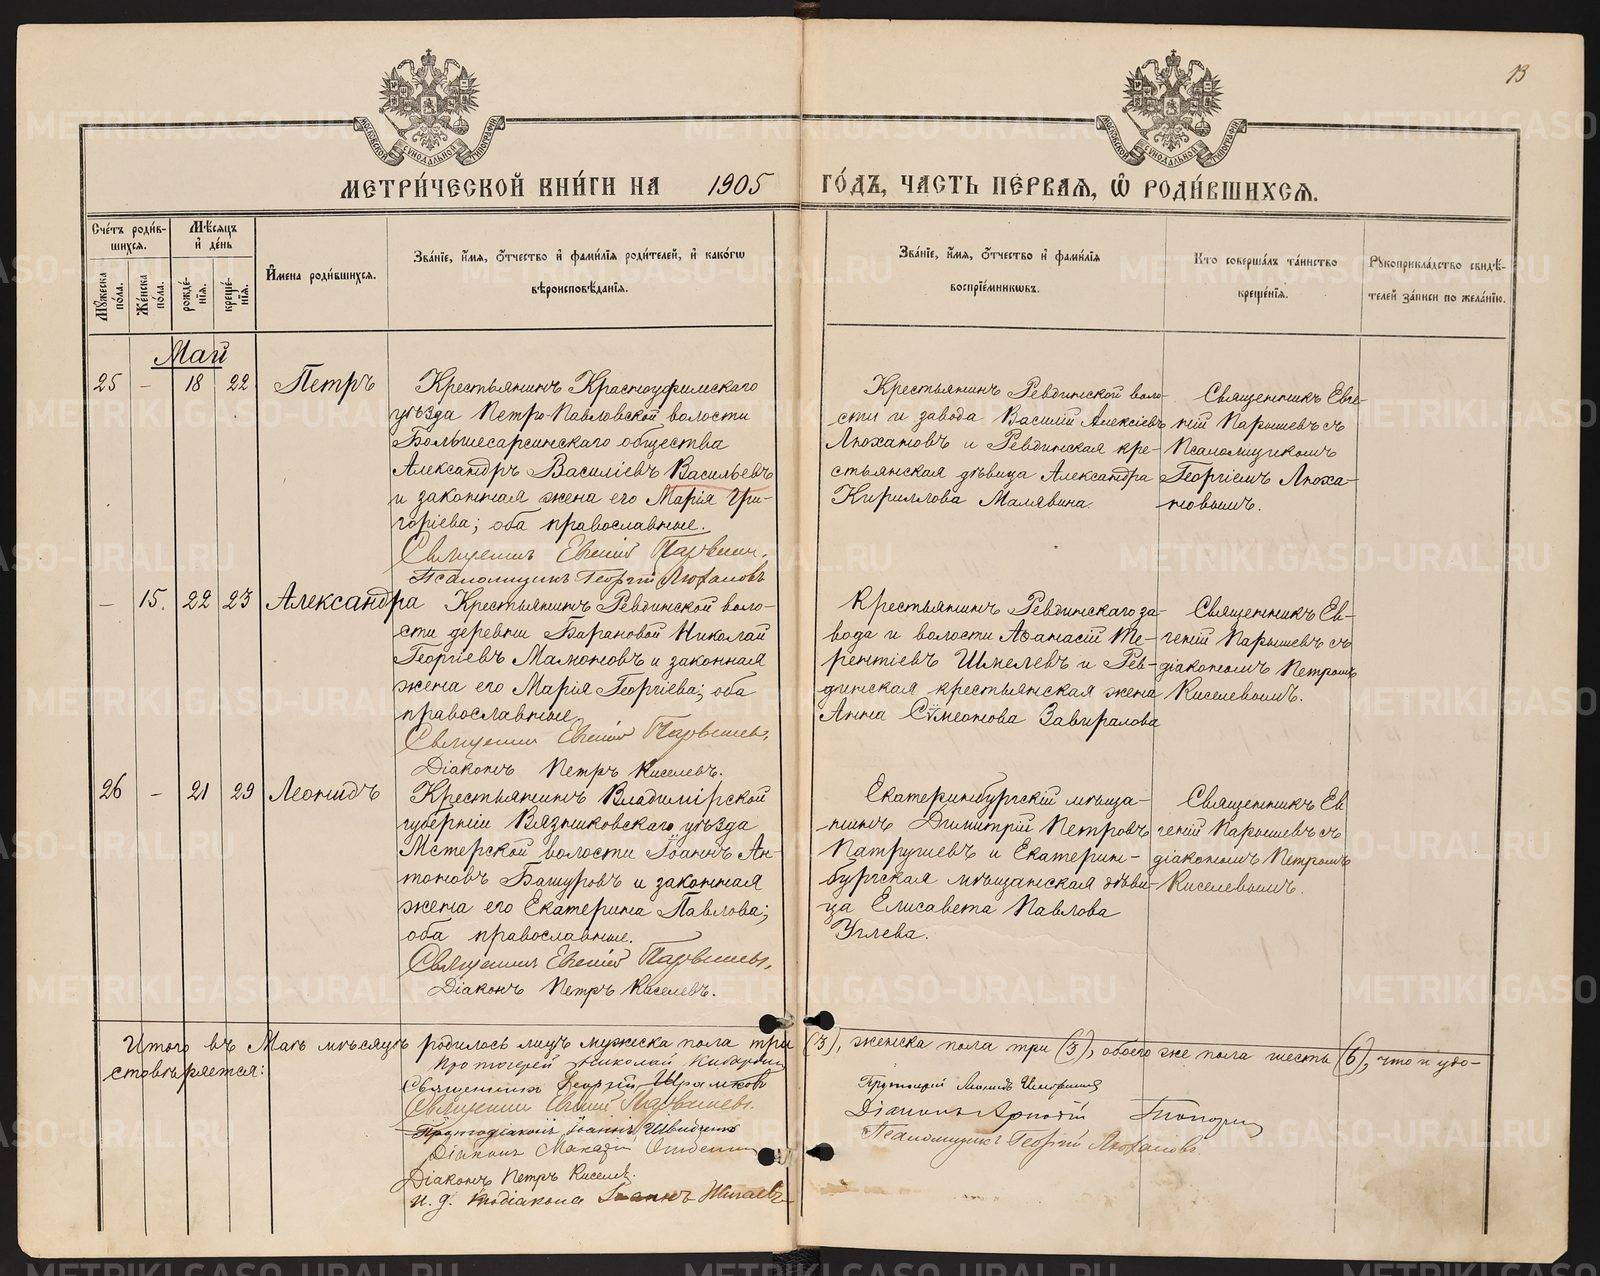 13
МОСКОВСКОЙ СѴНОДАЛЬНОЙ ТИПОГРАФІИ
МОСКОВСКОЙ СѴНОДАЛЬНОЙ ТИПОГРАФІИ
МЕТРИ́ЧЕСКОЙ КНИ́ГИ НА 1905 ГО́ДЪ, ЧАСТЬ ПЕ́РВАѦ, Ѡ РОДИ́ВШИХСѦ.
Сче́тъ роди́в-
шихся.
Мѣ́сяцъ
и҆ де́нь
Мꙋ́жеска
по́ла.
Же́нска
по́ла.
рожде́-
нїѧ.
креще́-
нїѧ.
И҆мена роди́вшихся.
Зва́нїе, и҆́мѧ, ѻ҆́тчество и҆ фами́лїѧ роди́телей, и҆ како́гѡ
вѣроисповѣ́данїѧ.
Зва́нїе, и҆́мѧ, ѻ҆́тчество и҆ фами́лїѧ
воспрїе́мникѡвъ.
Кто соверша́лъ та́инство
креще́нїѧ.
Рꙋкоприкла́дство свидѣ́-
телей за́писи по жела́нїю.
Май
25 — 18 22 Петръ
Крестьянинъ Красноуфимскаго
уѣзда Петро-Павловской волости
Большесарсинскаго общества
Александръ Василіевъ Васильевъ
и законная жена его Марія Гри-
горіева; оба православные.
Священникъ Евгеній Парышевъ.
Псаломщикъ Георгій Люхановъ
Крестьянинъ Ревдинской воло-
сти и завода Василій Алексіевъ
Люхановъ и Ревдинская кре-
стьянская дѣвица Александра
Кириллова Малявина.
Священникъ Евге-
ній Парышевъ съ
Псаломщикомъ
Георгіемъ Люха-
новымъ.
— 15. 22 23 Александра
Крестьянинъ Ревдинской воло-
сти деревни Барановой Николай
Георгіевъ Мамоновъ и законная
жена его Марія Георгіева; оба
православные
Священникъ Евгеній Парышевъ,
Діаконъ Петръ Киселевъ.
Крестьянинъ Ревдинскаго за-
вода и волости Аѳанасій Те-
рентіевъ Шмелевъ и Рев-
динская крестьянская жена
Анна Сѵмеонова Завиралова
Священникъ Ев-
геній Парышевъ съ
діакономъ Петромъ
Киселевымъ.
26 — 21 29 Леонидъ
Крестьянинъ Владимірской
губерніи Вязниковскаго уѣзда
Мстерской волости Іоаннъ Ан-
тоновъ Башуровъ и законная
жена его Екатерина Павлова;
оба православные.
Священникъ Евгеній Парышевъ,
Діаконъ Петръ Киселевъ.
Екатеринбургскій мѣща-
нинъ Димитрій Петровъ
Патрушевъ и Екатерин-
бургская мѣщанская дѣви-
ца Елисавета Павлова
Углева.
Священникъ Ев
геній Парышевъ съ
діакономъ Петромъ
Киселевымъ.
Итого въ Маѣ мѣсяцѣ родилось лицъ мужеска пола три (3), женска пола три (3), обоего же пола шесть (6), что и удо-
стовѣряется:
Протоіерей Николай
Священникъ Георгій
Священникъ Евгеній Парышевъ.
Протодіаконъ Іоаннъ
Діаконъ Макарій
Діаконъ Петръ Киселевъ
и. д. Иподіакона Іоаннъ
Протоіерей Леонидъ
Діаконъ
Псаломщикъ Георгій Люхановъ.